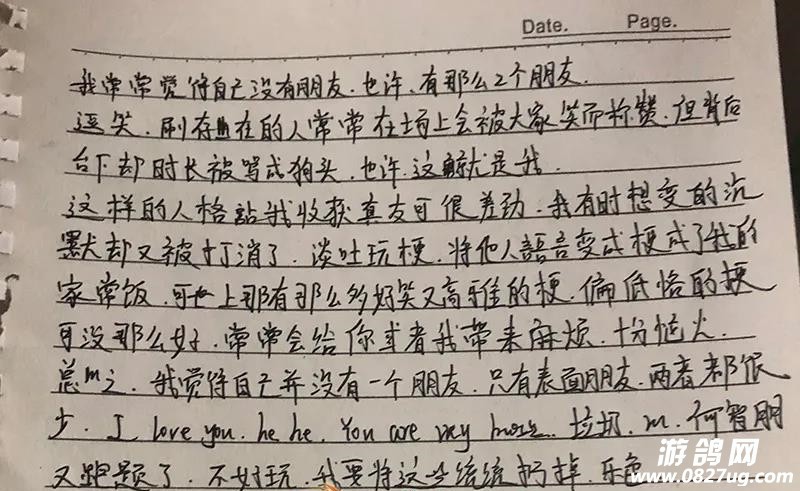 Date. Page.
我常常觉得自己没有朋友.也许、有那么2个朋友.
逗笑.刷存在的人常常在场上会被大家笑而称赞.但背后
台下却时长被骂成狗头.也许.这就是我.
这样的人格話我收获真友可很差劲.我有时想变的沉
默却又被打消了.谈吐玩梗.将他人語言变成梗成了我的
家常饭.可世上那有那么多好笑又高雅的梗.偏低俗的梗
可没那么好.常常会给你或者我带来麻烦.十分恼火.
总之.我觉得自己并没有一个朋友.只有表面朋友.两者都很
少. I love you. he he. You are my 垃圾. m. 何智朋
又跑题了.不好玩.我要将这些统统扔掉.乐色
游鸽网
www.0827ug.com